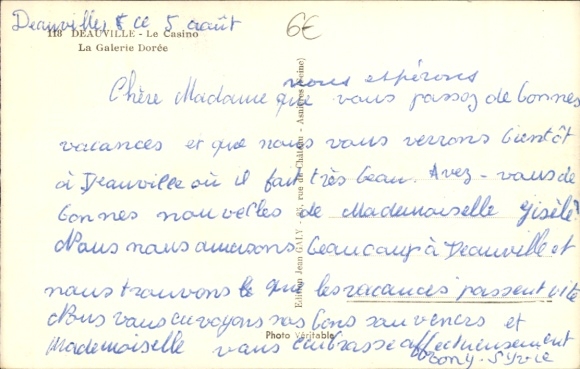 Deauville, ce 5 août
6€
118 DEAUVILLE - Le Casino
La Galerie Dorée
nous espérons
Chère Madame que vous passez de bonnes
vacances et que nous vous verrons bientôt
à Deauville où il fait très beau. Avez-vous de
bonnes nouvelles de Mademoiselle Gisèle?
Nous nous amusons beaucoup à Deauville et
nous trouvons que les vacances passent vite
Nous vous envoyons nos bons souvenirs et
Mademoiselle vous embrasse affectueusement
Tony - Sylvie
Edition Jean GALY - 45, rue du Château - Asnières (Seine)
Photo Véritable